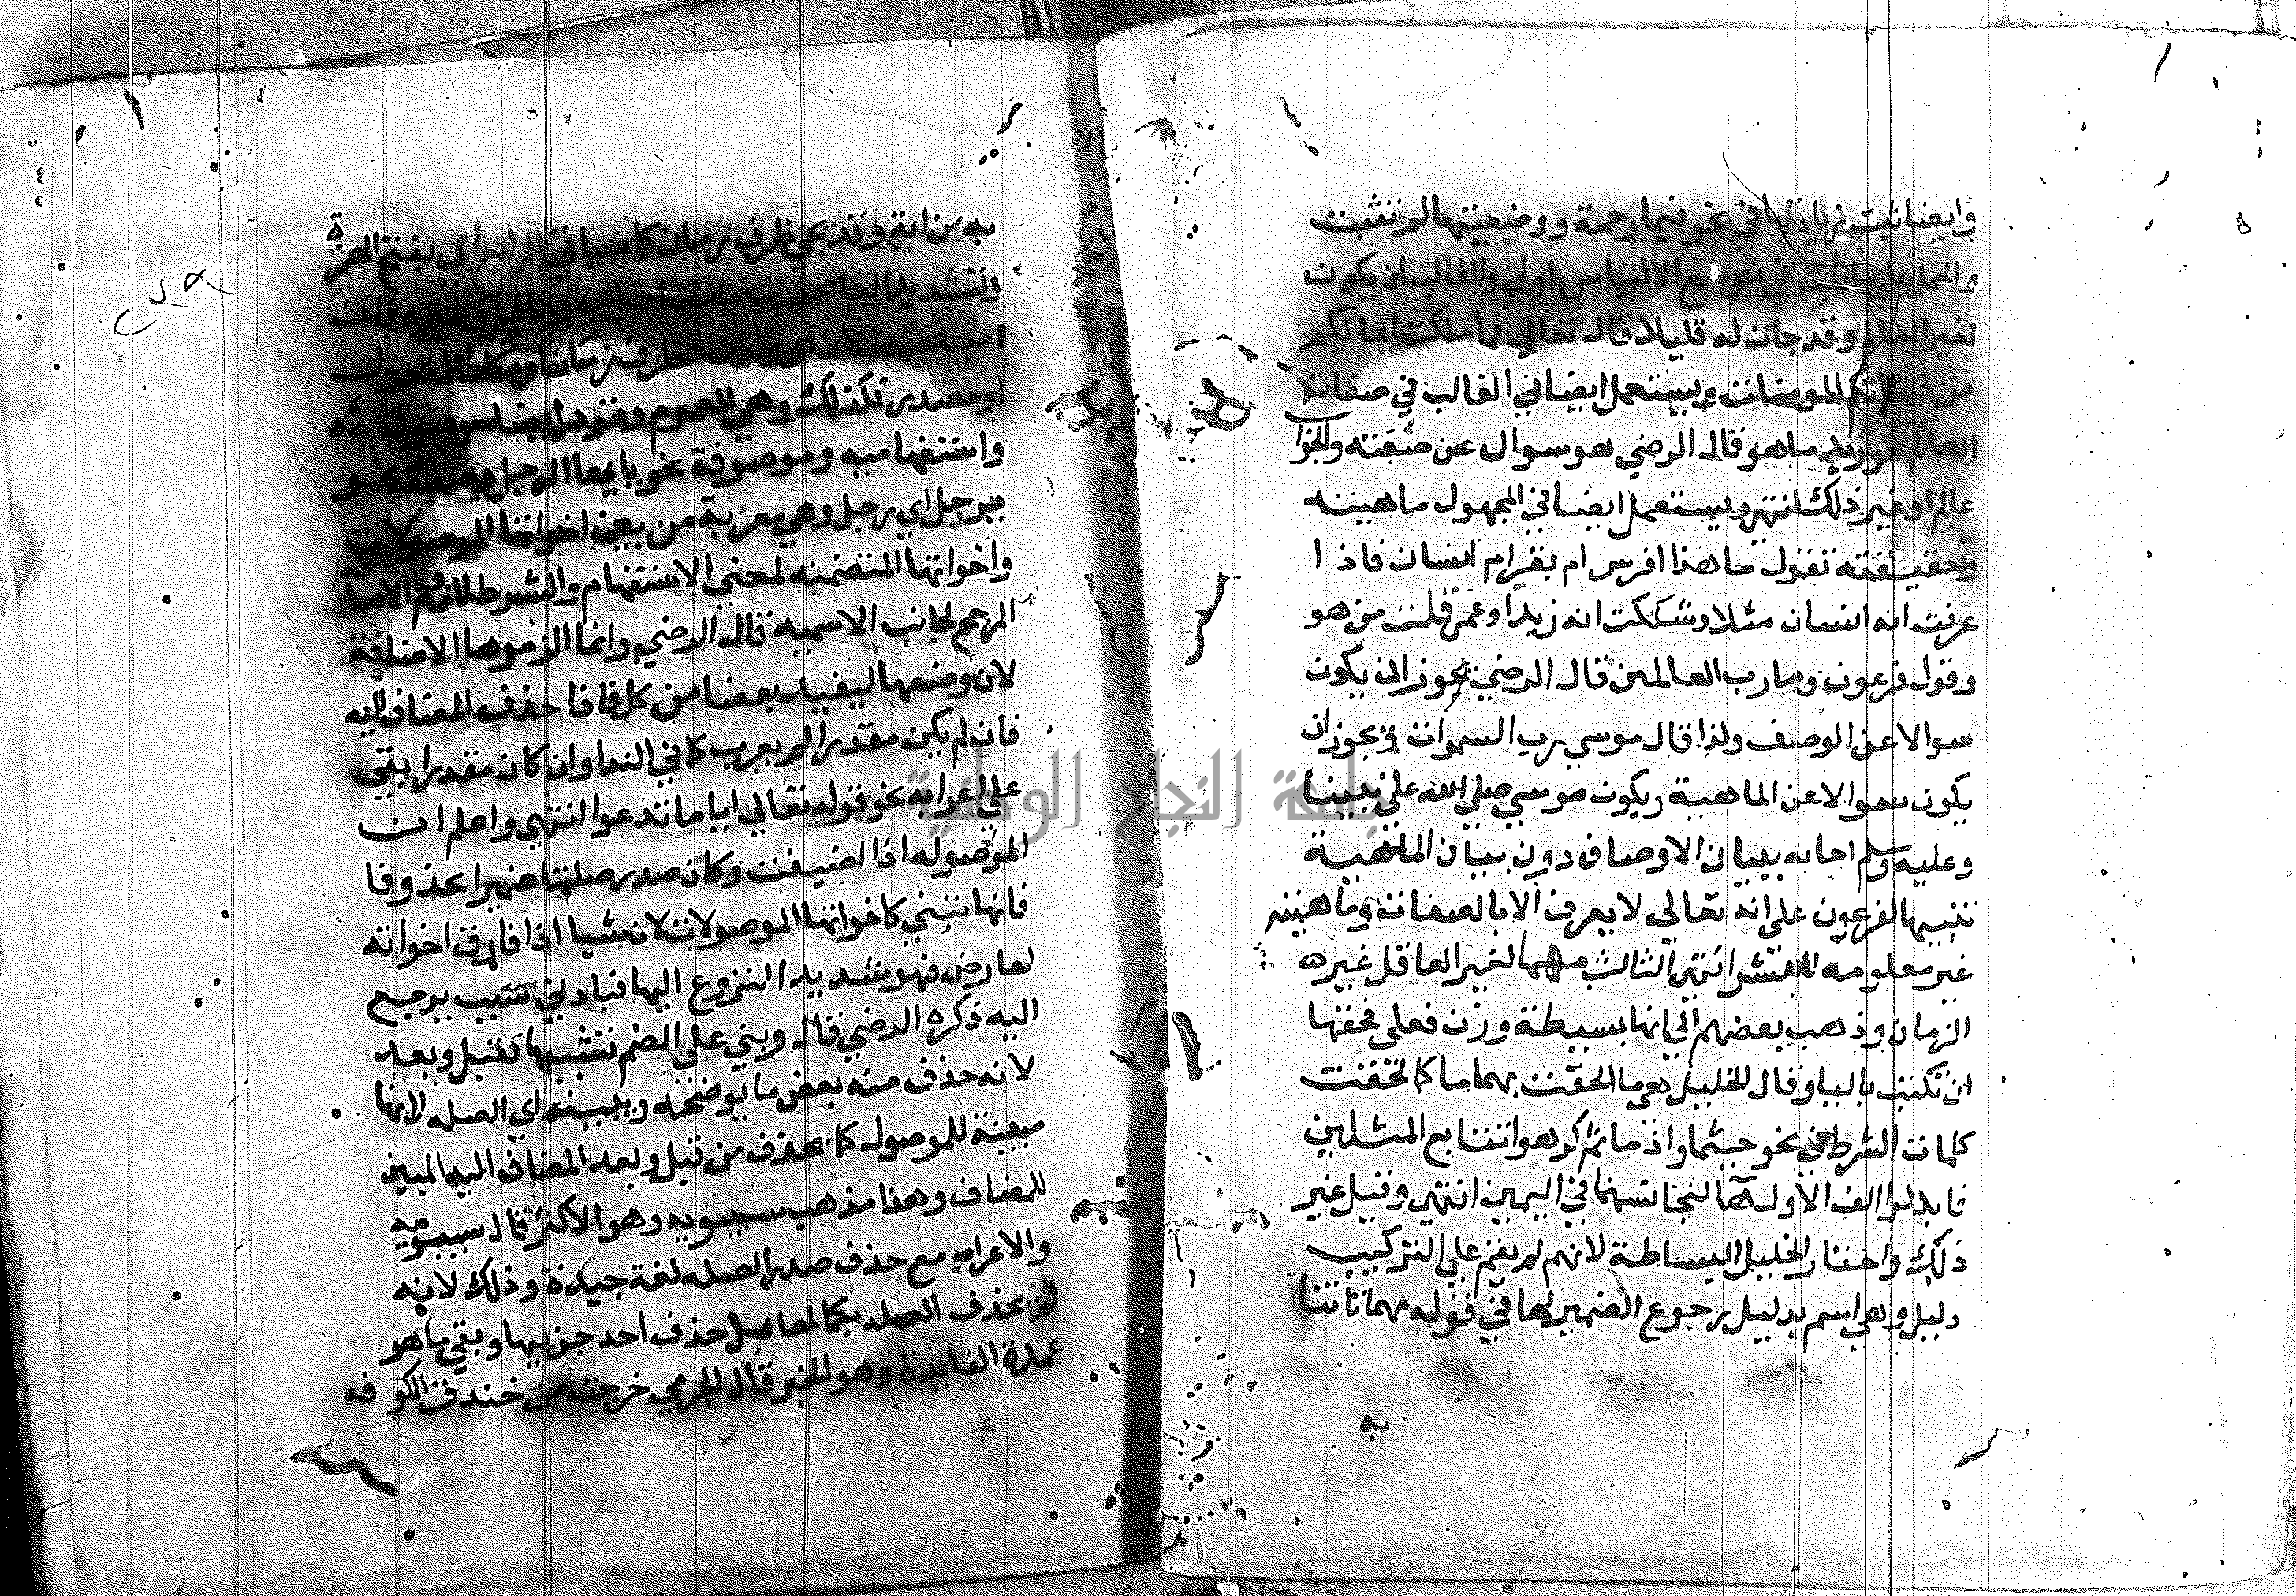 وايضا ثبت زيادتها في نحو فبما رحمة ووصفيتها لم تثبت
والحمل على ما ثبت في موضع الالتباس اولى والغالب ان يكون
لغير العالم وقد جات له قليلا قال تعالى فما ملكت ايمانكم
من فتياتكم المومنات ويستعمل ايضا في الغالب في صفات
العالم نحو زيد ما هو قال الرضي هو سوال عن صفته والجوا
عالم او غير ذلك انتهى ويستعمل ايضا في المجهول ماهيته
وحقيقته تقول ما هذا افرس ام بقر ام انسان فاذا
عرفت انه انسان مثلا وشككت انه زيد او عمر قلت من هو
وقول فرعون وما رب العالمين قال الرضي يجوز ان يكون
سوالا عن الوصف ولذا قال موسى رب السموات ويجوز ان
يكون سوالا عن الماهية ويكون موسى صلى الله على نبينا
وعليه وسلم اجابه ببيان الاوصاف دون بيان الماهية
تنبيها لفرعون على انه تعالى لا يعرف الا بالصفات وماهيته
غير معلومه للبشر انتهى الثالث مهما لغير العاقل غير
الزمان وذهب بعضهم الى انها بسيطة وزن فعلى فحقها
ان تكتب باليا وقال الخليل هي ما الحقت بها ما كما تحقت
كلمات الشرط في نحو حيثما واذ ما ثم كرهوا تتابع المثلين
فابدلوا الف الاول ها لتجانسهما في الهمس انتهى وقيل غير
ذلك واختار الخليل البساطة لانهم لم يقم على التركيب
دليل وهي اسم بدليل رجوع الضمير لها في قوله مهما تاتنا
به
به من اية وقد يجي ظرف زمان كما سياتي الرابع اي بفتح الهمزة
وتشديد اليا بحسب ما تضاف اليه وغيره فان
اضيفت لمكان او فظرف زمان او مكان او مفعول
او مصدر فكذلك وهي للعموم وترد ايضا موصولة
واستفهاميه وموصوفة نحو يا ايها الرجل وصفة نحو
برجل اي رجل وهي معربة من بين اخواتها الموصولات
واخواتها المتضمنه لمعنى الاستفهام والشرط للزوم الاضا
المرجح لجانب الاسميه قال الرضي وانما الزموها الاضافة
لان وضعها ليفيد بعضا من كل فاذا حذف المضاف اليه
فان لم يكن مقدرا لم يعرب كما في الندا وان كان مقدرا بقى
على اعرابه نحو قوله تعالى اياما تدعوا انتهى واعلم ان
الموصوله اذا اضيفت وكان صدر صلتها ضميرا محذوفا
فانها تبنى كاخواتها الموصولات لان شيا اذا فارق اخواته
لعارض فهو شديد النزوع اليها فبادنى سبب يرجع
اليه ذكره الرضي قال وبني على الضم تشبيها بقبل وبعد
لانه حذف منه بعض ما يوضحه ويبينه اي الصله لانها
مبينة للموصول كما يحذف من قبل وبعد المضاف اليه المبين
للمضاف وهذا مذهب سيبويه وهو الاكثر قال سيبويه
والاعراب مع حذف صدر الصله لغة جيدة وذلك لانه
لم يحذف الصله بكمالها بل حذف احد جزيها وبقي ما هو
عمدة الفايدة وهو الخبر قال الجرمي خرجت من خندق الكوفه
جامعة النجاح الوطنية